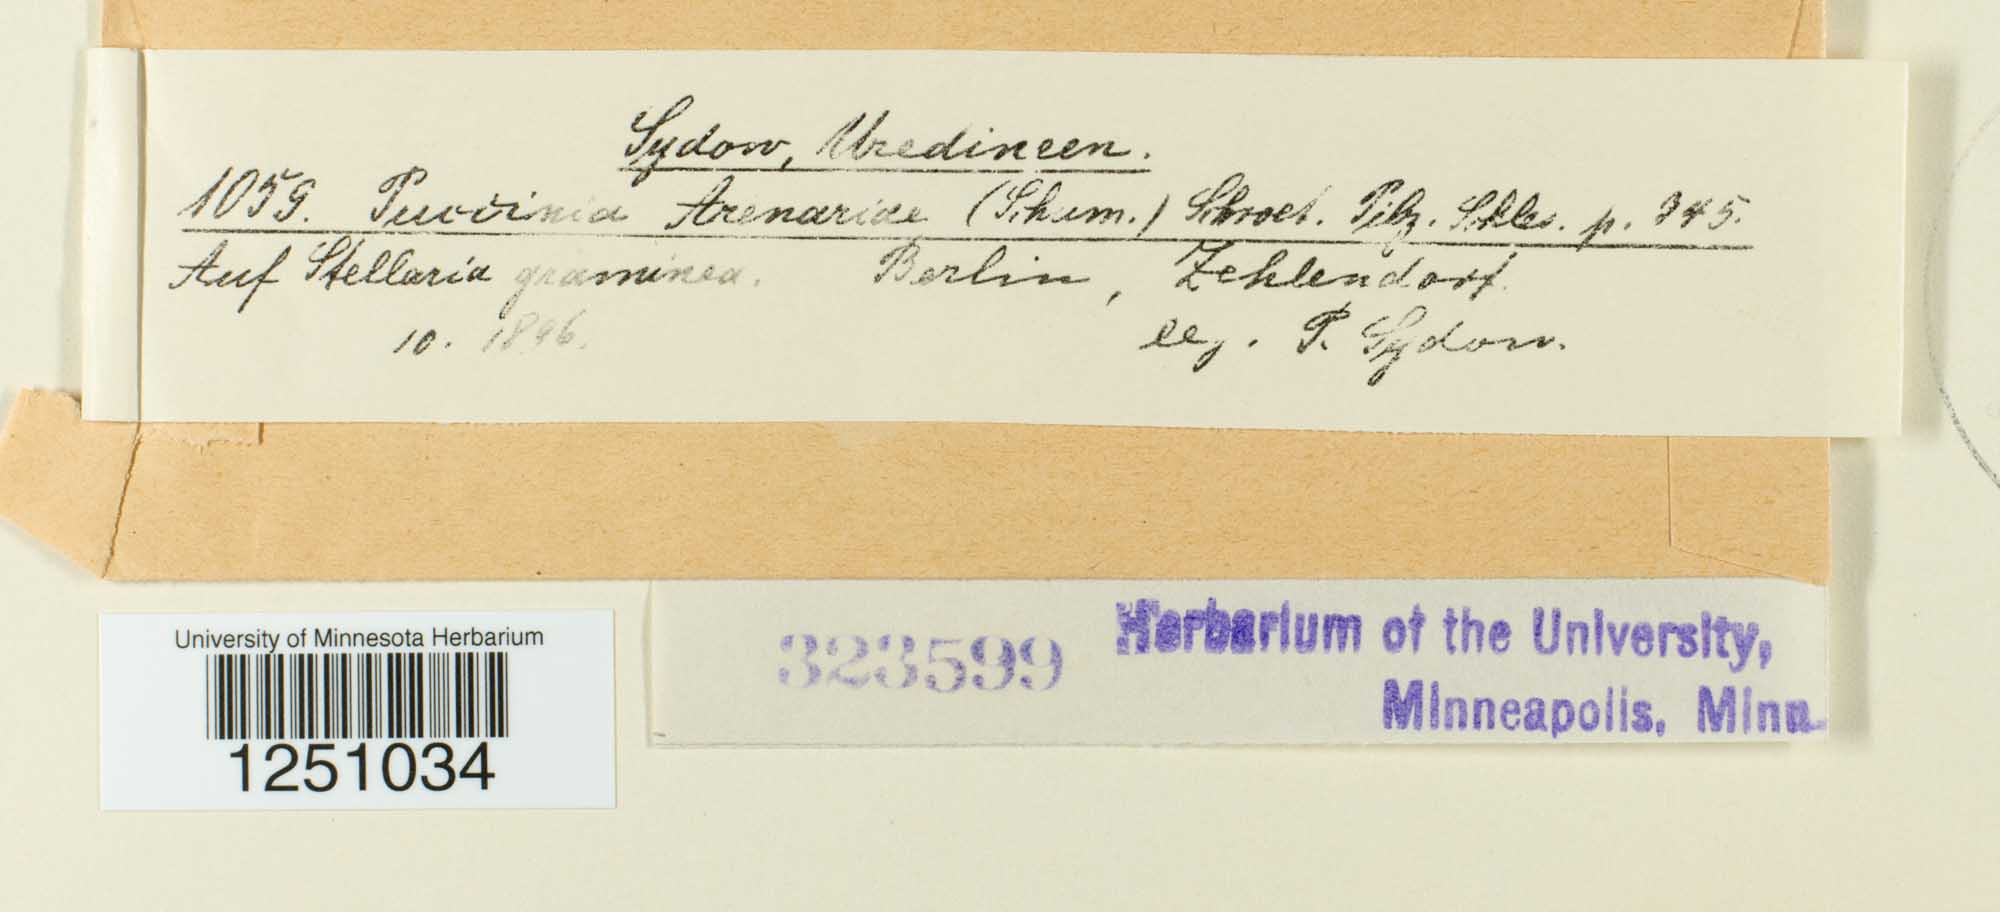 Sydow, Uredineen.
1059. Puccinia Arenariae (Schum.) Schroet. Pilz. Schles. p. 345.
Auf Stellaria graminea. Berlin, Zehlendorf.
10. 1896. leg. P. Sydow.
323599 Herbarium of the University,
Minneapolis, Minn.
University of Minnesota Herbarium
1251034